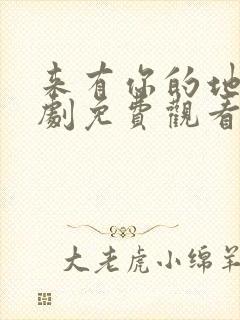 来有你的地
劇免費觀看
大老虎小绵羊